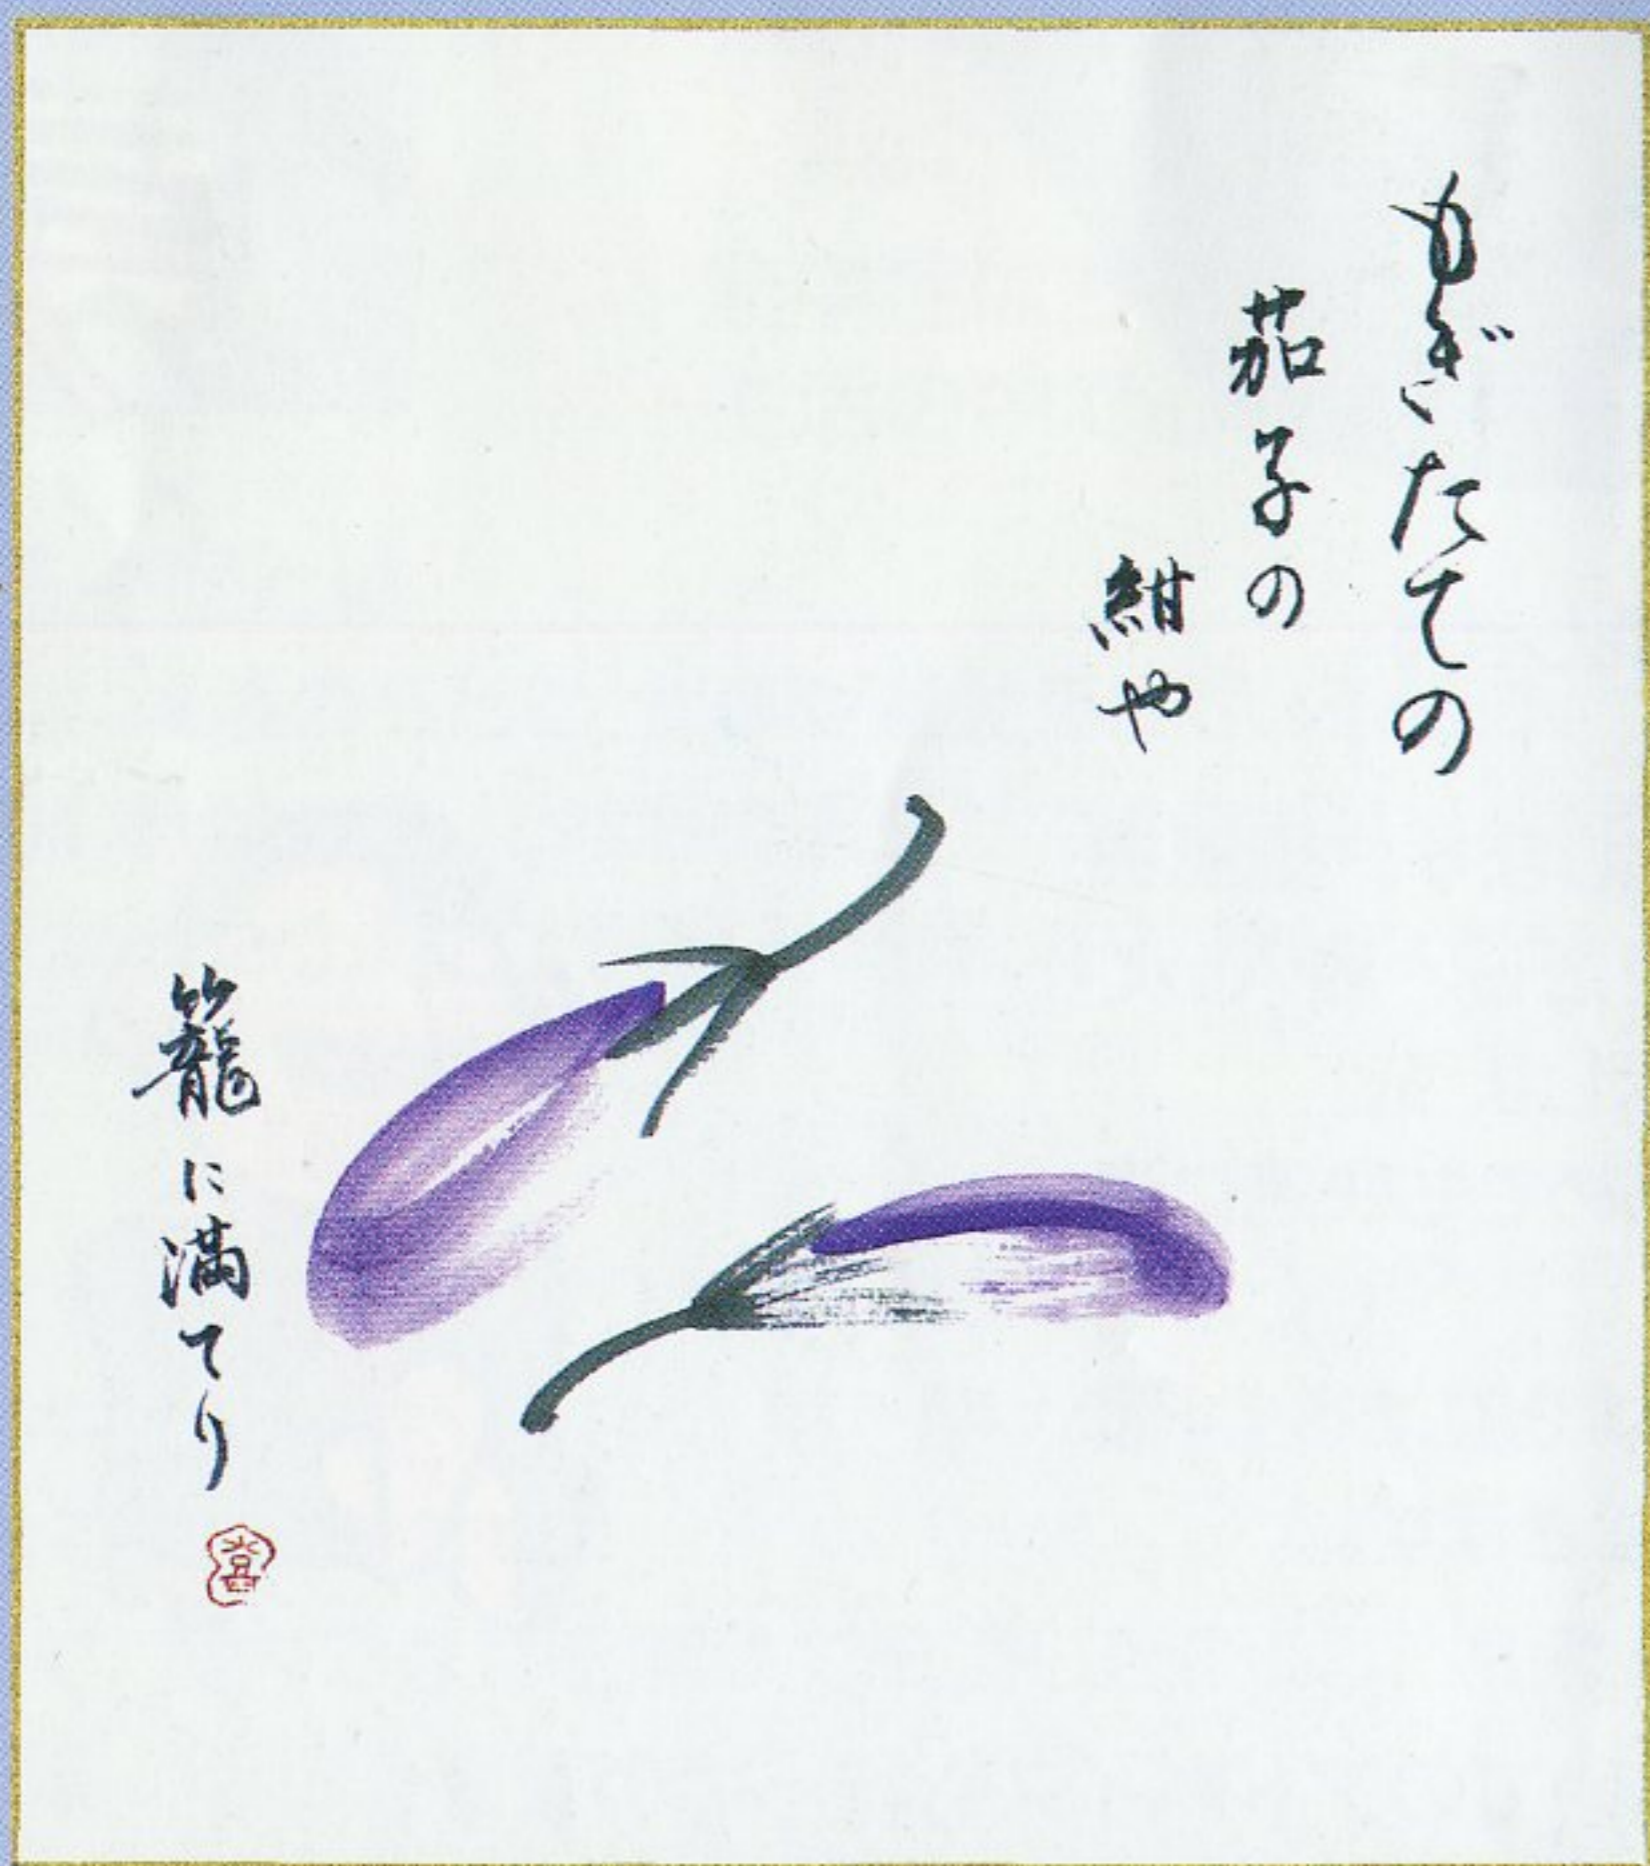 もぎたての
茄子の
紺や
籠に満てり